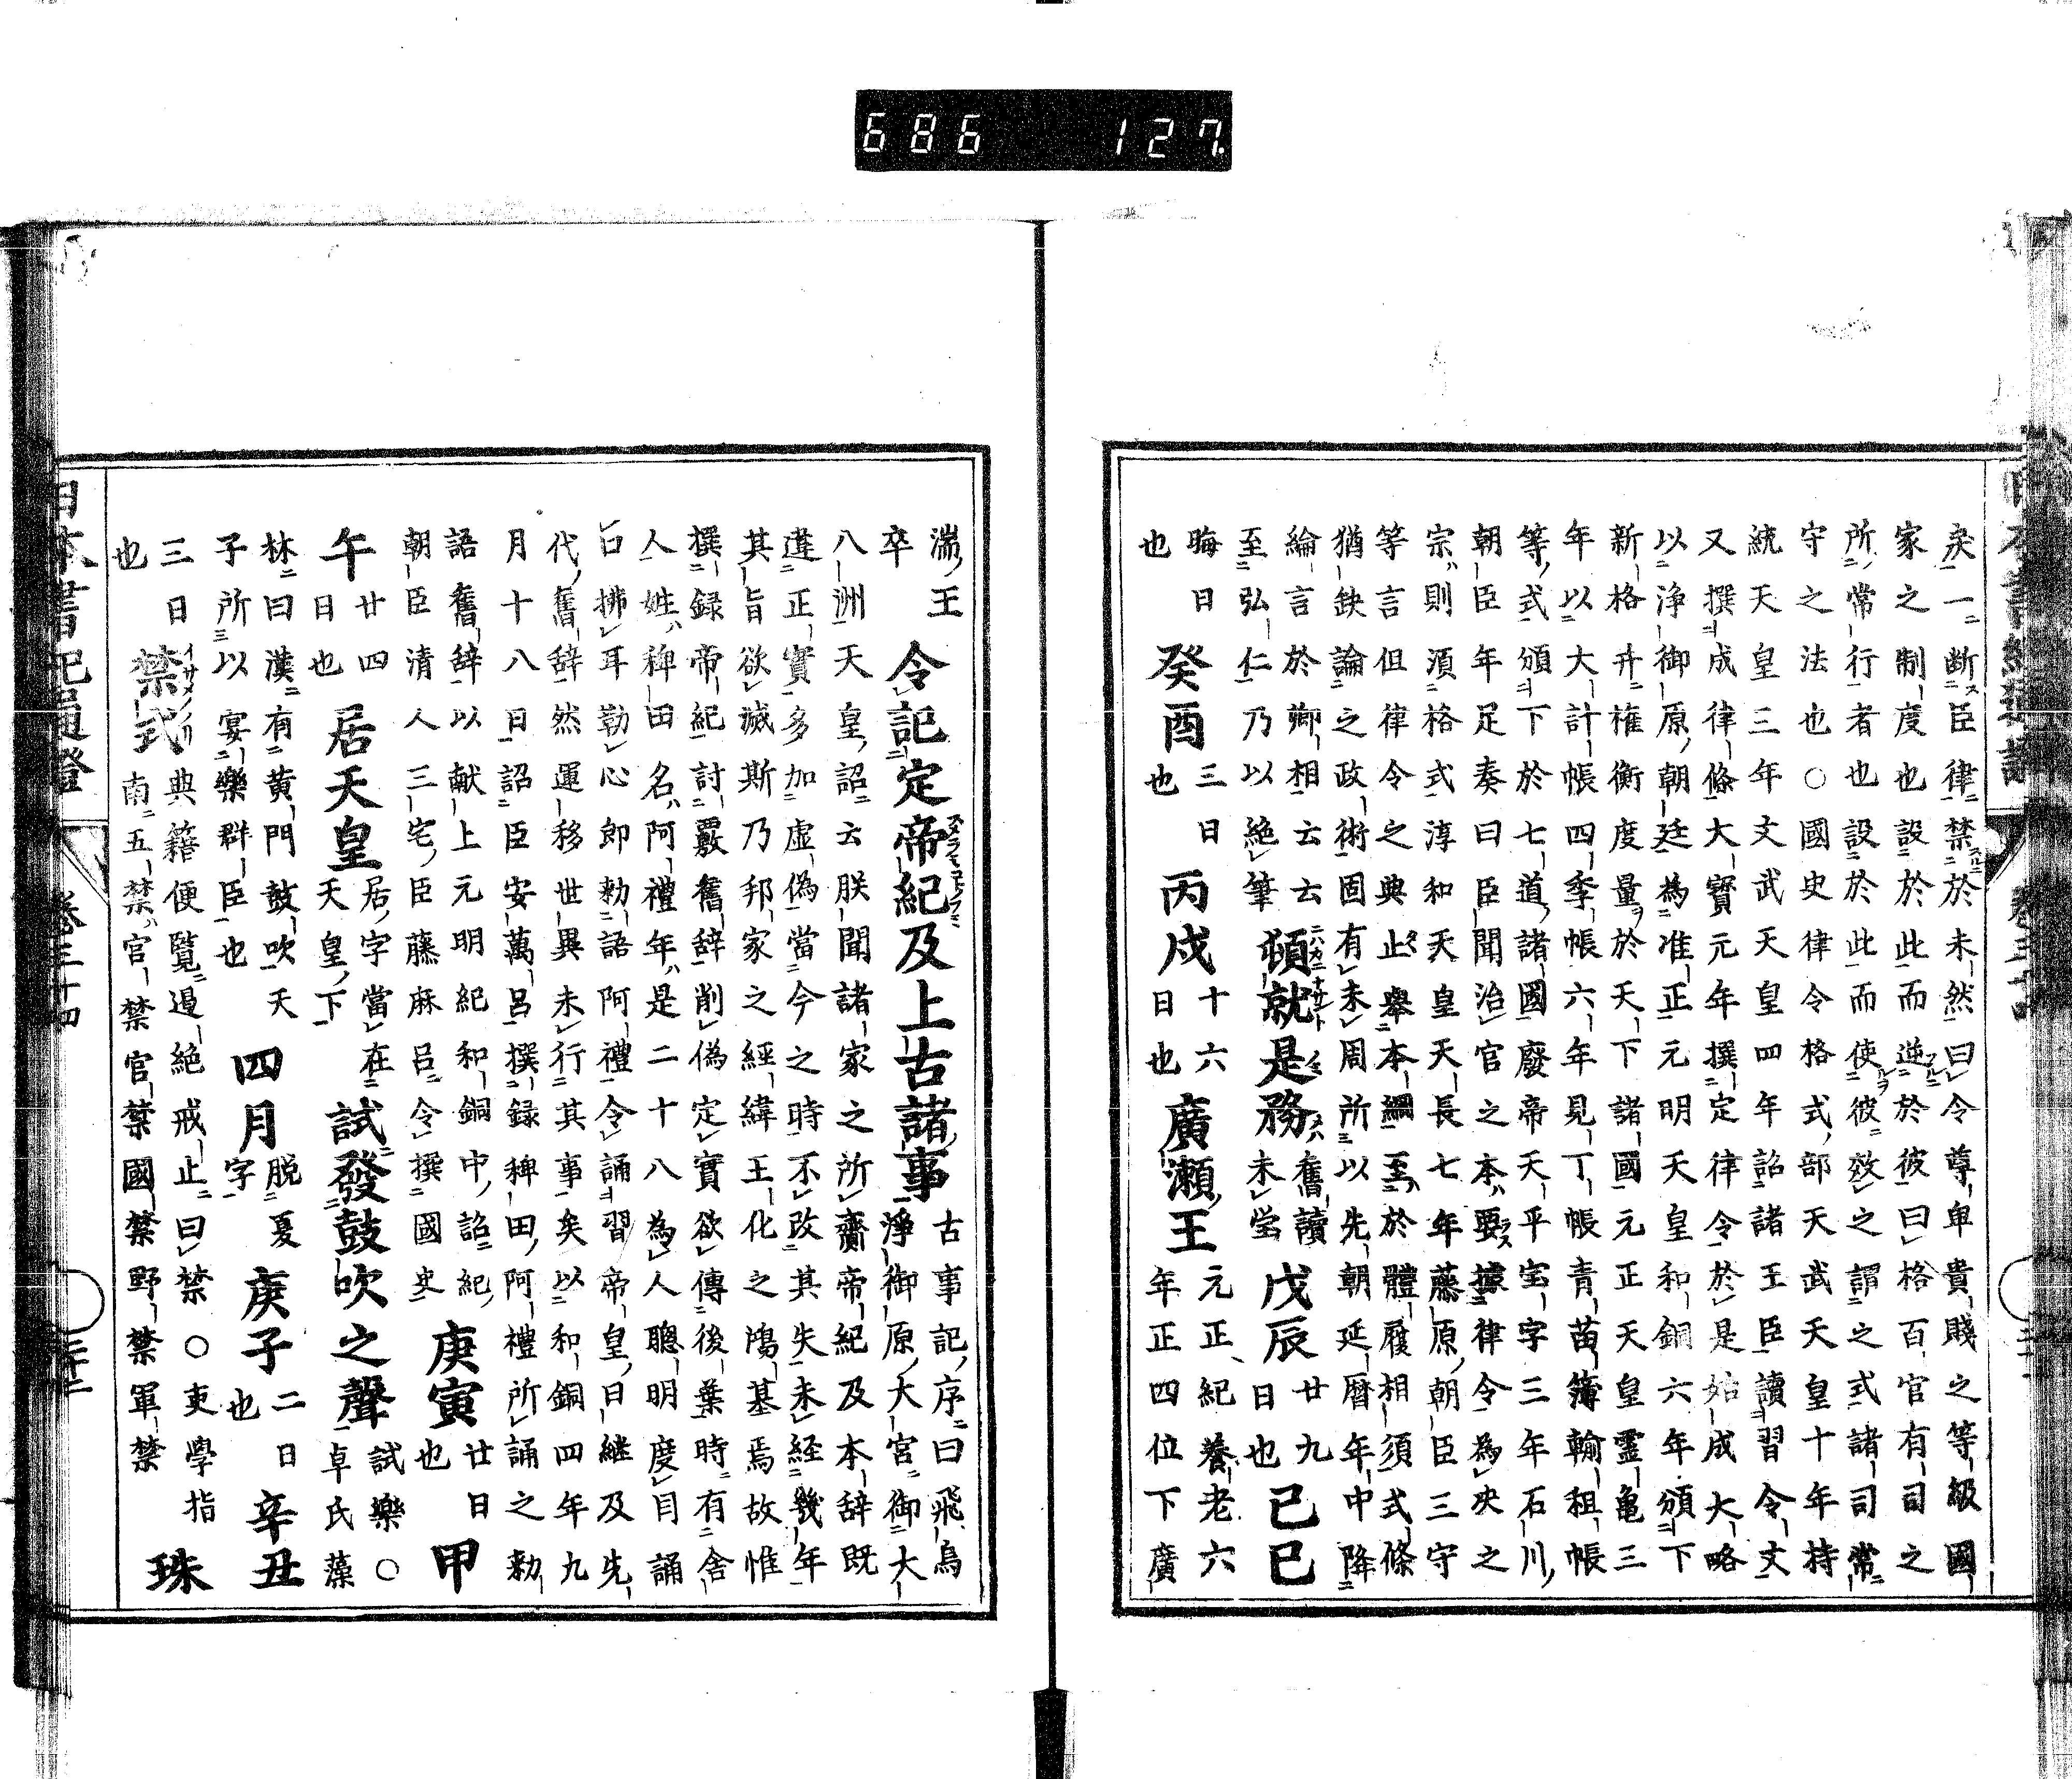 686 127.
矣一断臣律禁於未然曰令尊卑貴賤之等級國
家之制度也設於此而逆於彼曰格百官有司之
所常行者也設於此而使彼效之謂之式諸司常
守之法也○國史律令格式部天武天皇十年持
統天皇三年文武天皇四年詔諸王臣讀習令文
又撰成律條大寳元年撰定律令於是始成大略
以浄御原朝廷為准正元明天皇和銅六年頒下
新格升權衡度量於天下諸國元正天皇霊亀三
年以大計帳四季帳六年見丁帳青苗簿輸租帳
等式頒下於七道諸國廢帝天平宝字三年石川
朝臣年足奏曰臣聞治官之本要據律令為政之
宗則湏格式淳和天皇天長七年藤原朝臣三守
等言但律令之典止舉本綱至於體履相須式條
猶缺論之政術固有未周所以先朝延曆年中降
綸言於卿相云云
至弘仁乃以絶筆
頓就是務
舊讀
未瑩
戊辰
廿九
日也
己巳
晦日
也
癸酉
三日
也
丙戌
十六
日也
廣瀬王
元正紀養老六
年正四位下廣
湍王
卒
令記定帝紀及上古諸事
古事記序曰飛鳥
浄御原大宮御大
八洲天皇詔云朕聞諸家之所齎帝紀及本辞既
違正實多加虚偽當今之時不改其失未経幾年
其旨欲滅斯乃邦家之經緯王化之鴻基焉故惟
撰録帝紀討覈舊辞削偽定實欲傳後葉時有舎
人姓稗田名阿禮年是二十八為人聰明度目誦
口拂耳勒心即勅語阿禮令誦習帝皇日継及先
代舊辞然運移世異未行其事矣以和銅四年九
月十八日詔臣安萬呂撰録稗田阿禮所誦之勅
語舊辞以献上元明紀和銅中詔紀
朝臣清人三宅臣藤麻呂令撰國史
庚寅
廿日
也
甲
午
廿四
日也
居天皇
居字當在
天皇下
試發鼓吹之聲
試樂○
卓氏藻
林曰漢有黄門鼓吹天
子所以宴樂群臣也
四月
脱夏
字
庚子
二日
也
辛丑
三日
也
禁式
典籍便覧遏絶戒止曰禁○吏學指
南五禁官禁官禁國禁野禁軍禁
珠
日本書紀通證
卷三十四